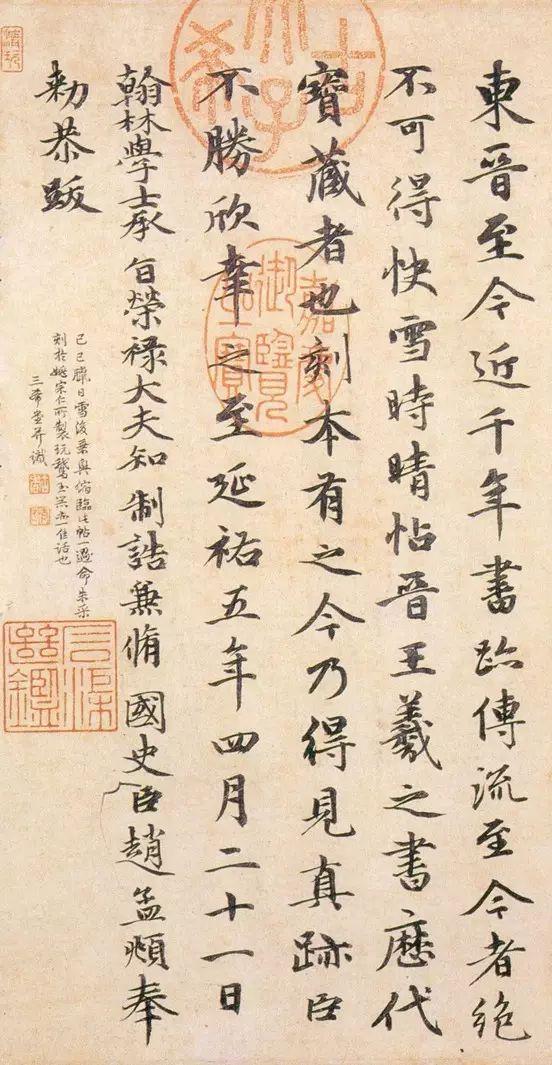 東晉至今近千年書跡傳流至今者絕
不可得快雪時晴帖晉王羲之書歷代
寶藏者也刻本有之今乃得見真跡臣
不勝欣幸之至延祐五年四月二十一日
翰林學士承旨榮祿大夫知制誥兼脩國史臣趙孟頫奉
勑恭跋
己巳臘日雪後乘興偶臨此帖一過命朱采
刻於姚宗仁所製玩鵞玉亦一佳話也
三希堂並識
古希天子
嘉慶御覽之寶
石渠繼鑑